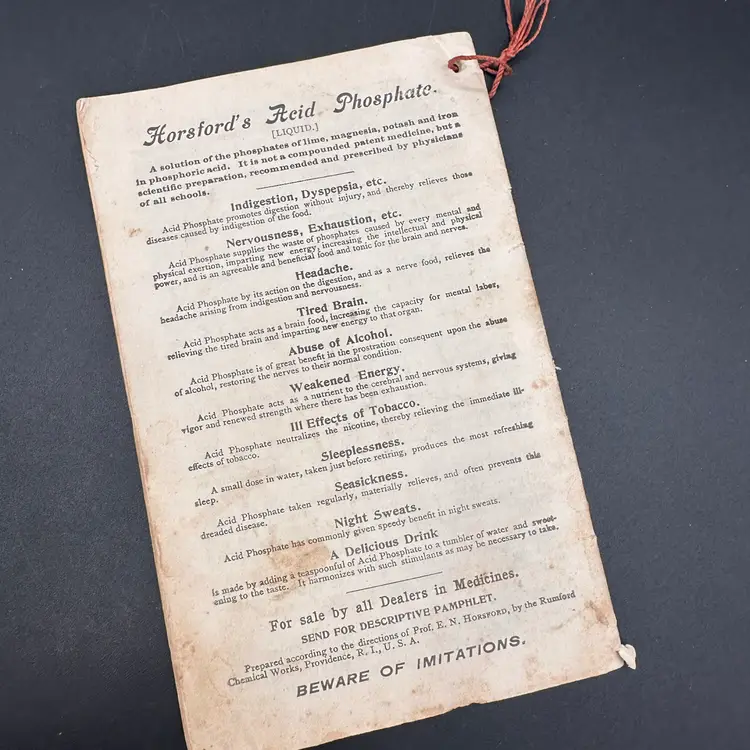 Horsford's Acid Phosphate.
[LIQUID.]
A solution of the phosphates of lime, magnesia, potash and iron
in phosphoric acid. It is not a compounded patent medicine, but a
scientific preparation, recommended and prescribed by physicians
of all schools.
Indigestion, Dyspepsia, etc.
Acid Phosphate promotes digestion without injury, and thereby relieves those
diseases caused by indigestion of the food.
Nervousness, Exhaustion, etc.
Acid Phosphate supplies the waste of phosphates caused by every mental and
physical exertion, imparting new energy, increasing the intellectual and physical
power, and is an agreeable and beneficial food and tonic for the brain and nerves.
Headache.
Acid Phosphate by its action on the digestion, and as a nerve food, relieves the
headache arising from indigestion and nervousness.
Tired Brain.
Acid Phosphate acts as a brain food, increasing the capacity for mental labor,
relieving the tired brain and imparting new energy to that organ.
Abuse of Alcohol.
Acid Phosphate is of great benefit in the prostration consequent upon the abuse
of alcohol, restoring the nerves to their normal condition.
Weakened Energy.
Acid Phosphate acts as a nutrient to the cerebral and nervous systems, giving
vigor and renewed strength where there has been exhaustion.
Ill Effects of Tobacco.
Acid Phosphate neutralizes the nicotine, thereby relieving the immediate ill-
effects of tobacco.
Sleeplessness.
A small dose in water, taken just before retiring, produces the most refreshing
sleep.
Seasickness.
Acid Phosphate taken regularly, materially relieves, and often prevents this
dreaded disease.
Night Sweats.
Acid Phosphate has commonly given speedy benefit in night sweats.
A Delicious Drink
is made by adding a teaspoonful of Acid Phosphate to a tumbler of water and sweet-
ening to the taste. It harmonizes with such stimulants as may be necessary to take.
For sale by all Dealers in Medicines.
SEND FOR DESCRIPTIVE PAMPHLET.
Prepared according to the directions of Prof. E. N. HORSFORD, by the Rumford
Chemical Works, Providence, R. I., U. S. A.
BEWARE OF IMITATIONS.